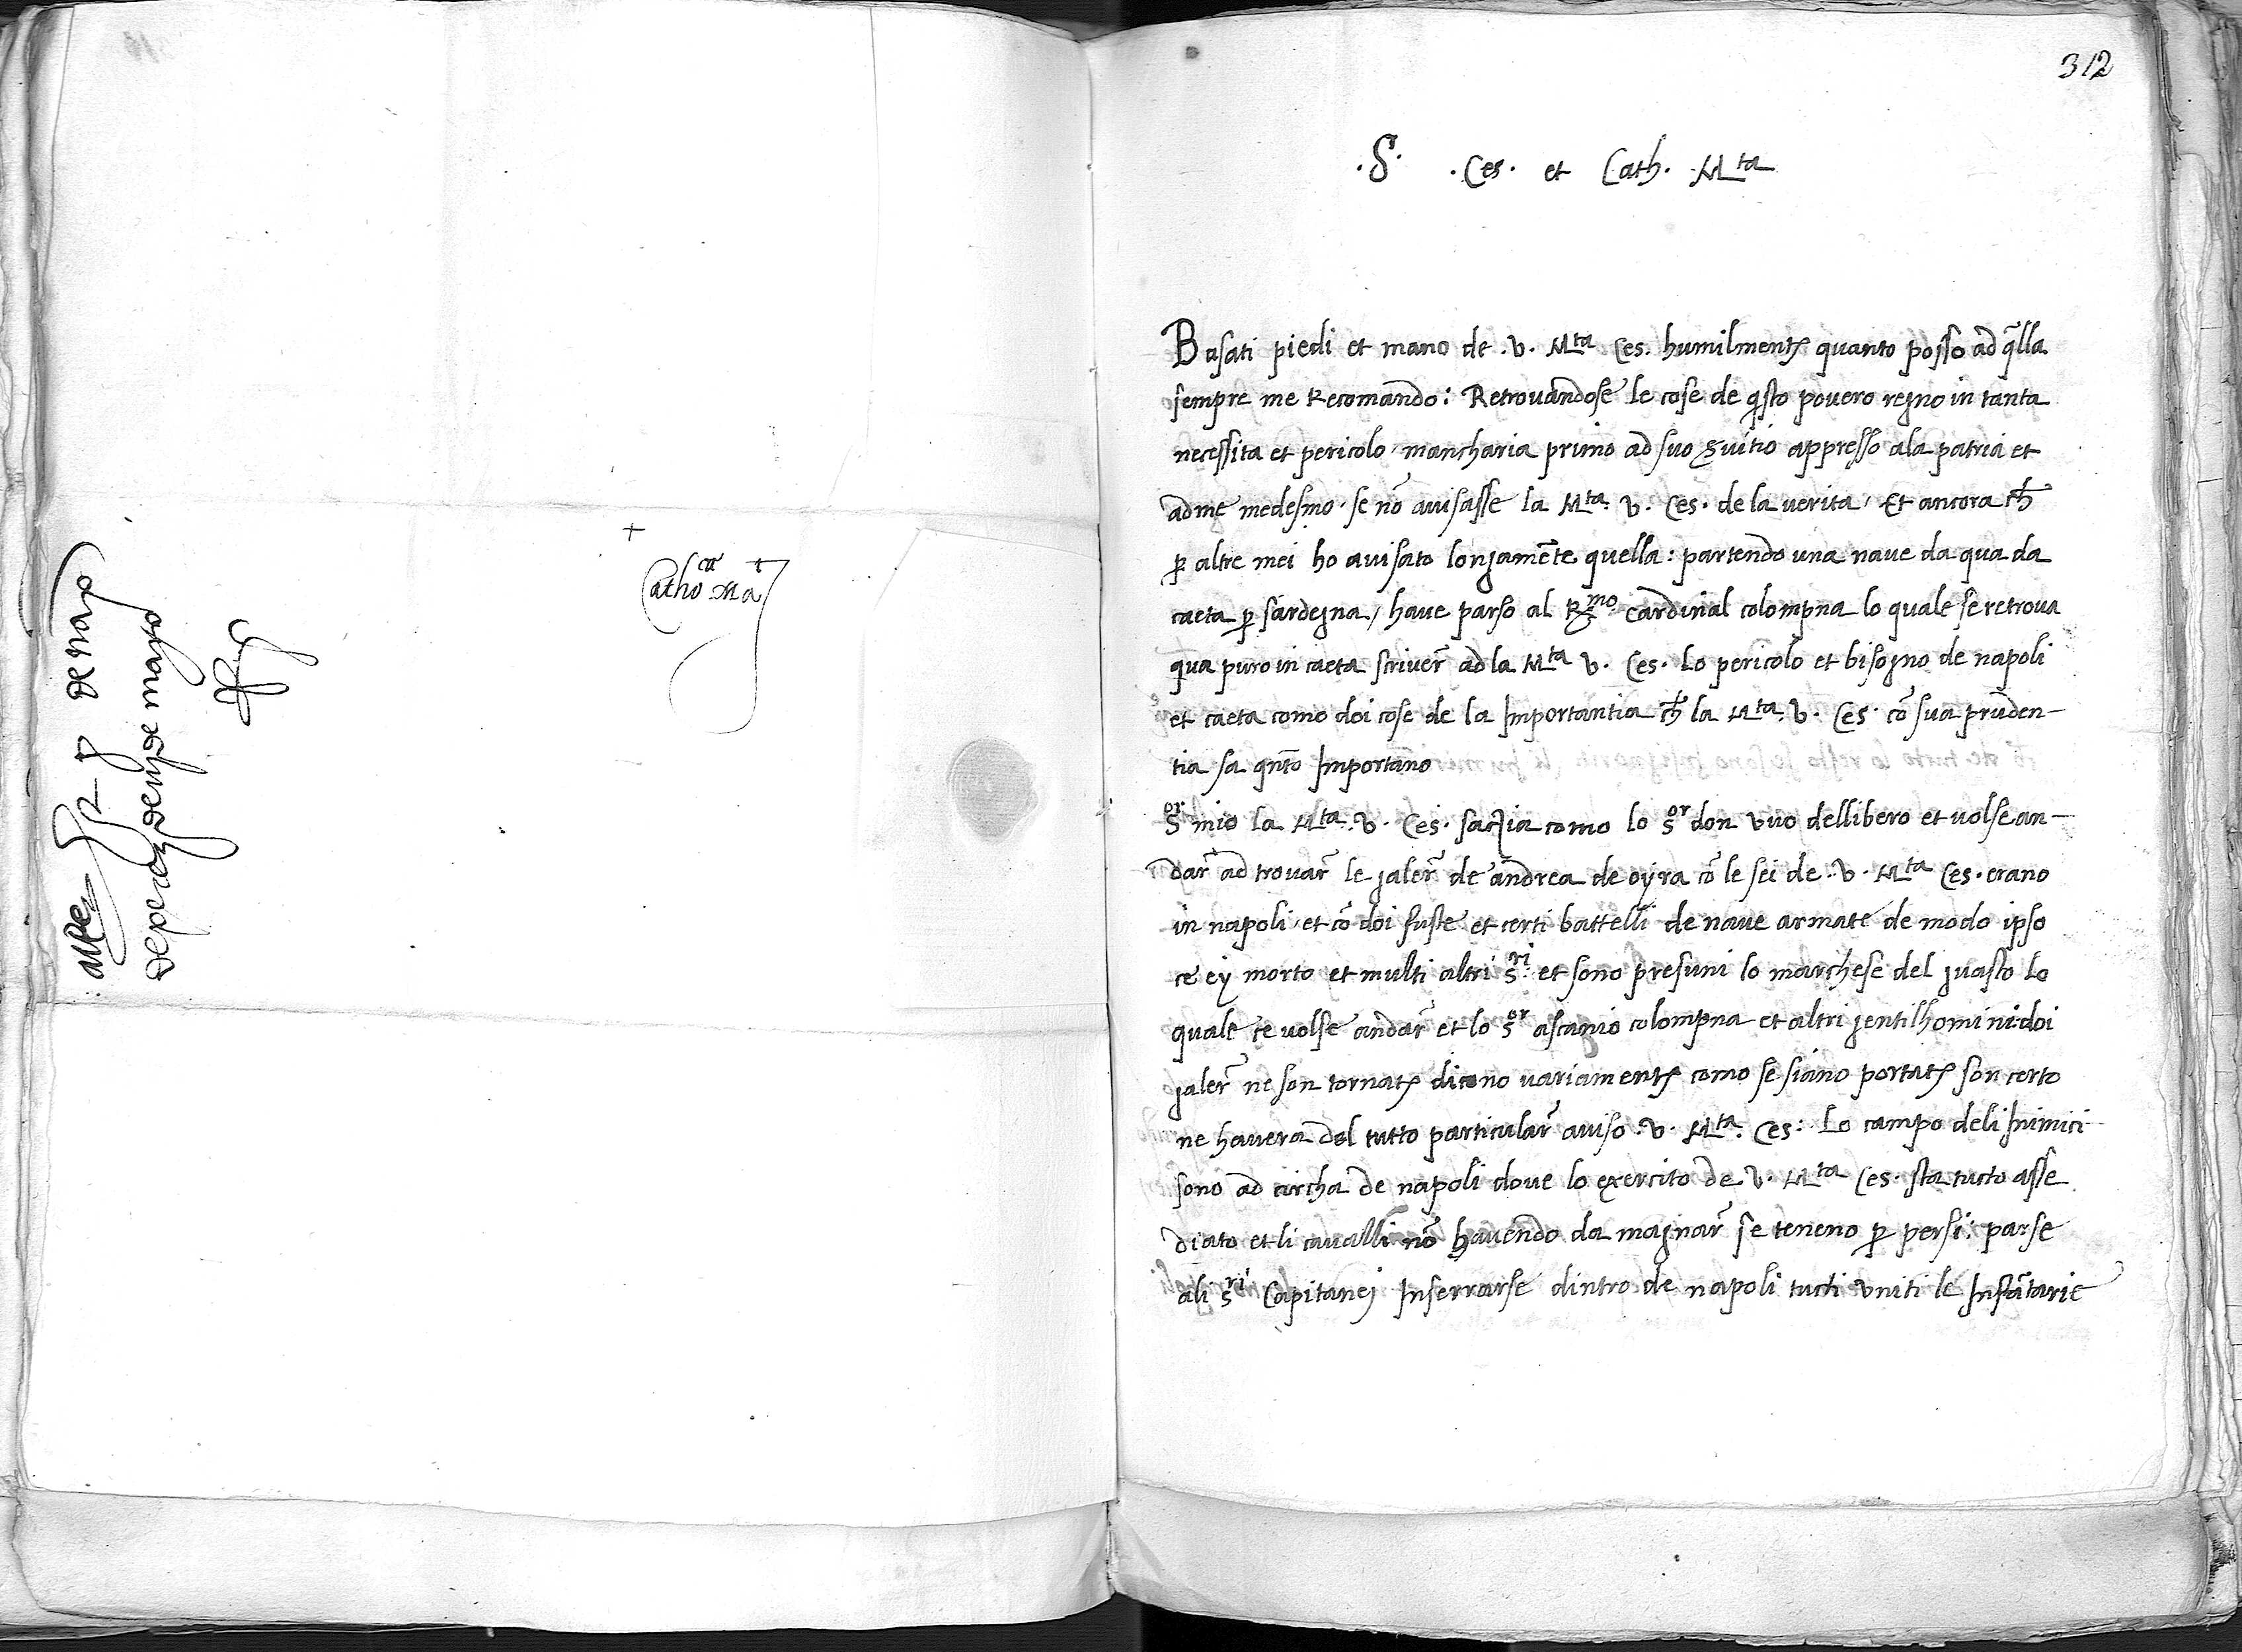 312
.S. .Ces. et Cath. Mta
Cathoca Mat
Basati piedi et mano de .v. Mta Ces. humilmente quanto posso ad qlla
sempre me Recomando: Retrovandose le cose de qsto povero regno in tanta
necessita et pericolo mancharia primo ad suo servitio appresso ala patria et
adme medesmo. se nō avisasse la Mta. v. Ces. de la verita, Et ancora ch
p altre mei ho avisato longamēte quella: partendo una nave da qua da
caeta p sardegna, have parso al Rmo. cardinal colompna lo quale se retrova
qua puro in caeta scriver ad la Mta v. Ces. Lo pericolo et bisogno de napoli
et caeta como doi cose de la Importantia ch la Mta. v. Ces. cō sua pruden-
tia sa qnto Importano
Sor mio la Mta. v. Ces. saczia como lo sor don vuo dellibero et volse an-
dar ad trovar le galer de andrea de oyra cō le sei de .v. Mta Ces. erano
in napoli, et cō doi fuste et certi battelli de nave armate de modo ipso
ce ey morto et multi altri sri et sono presuni lo marchese del guasto lo
quale ce volse andar et lo sor ascanio colompna et altri gentilhomini: doi
galer ne son tornate dicono variamente como se siano portate son certo
ne havera del tutto particular aviso .v. Mta. Ces: Lo campo deli Inimici
sono ad circha de napoli dove lo exercito de v. Mta Ces. sta tucto asse
diato et li cavalli nō havendo da magnar se teneno p persi: parse
ali sri Capitanej Inserrarse dintro de napoli tucti vniti le Infātarie